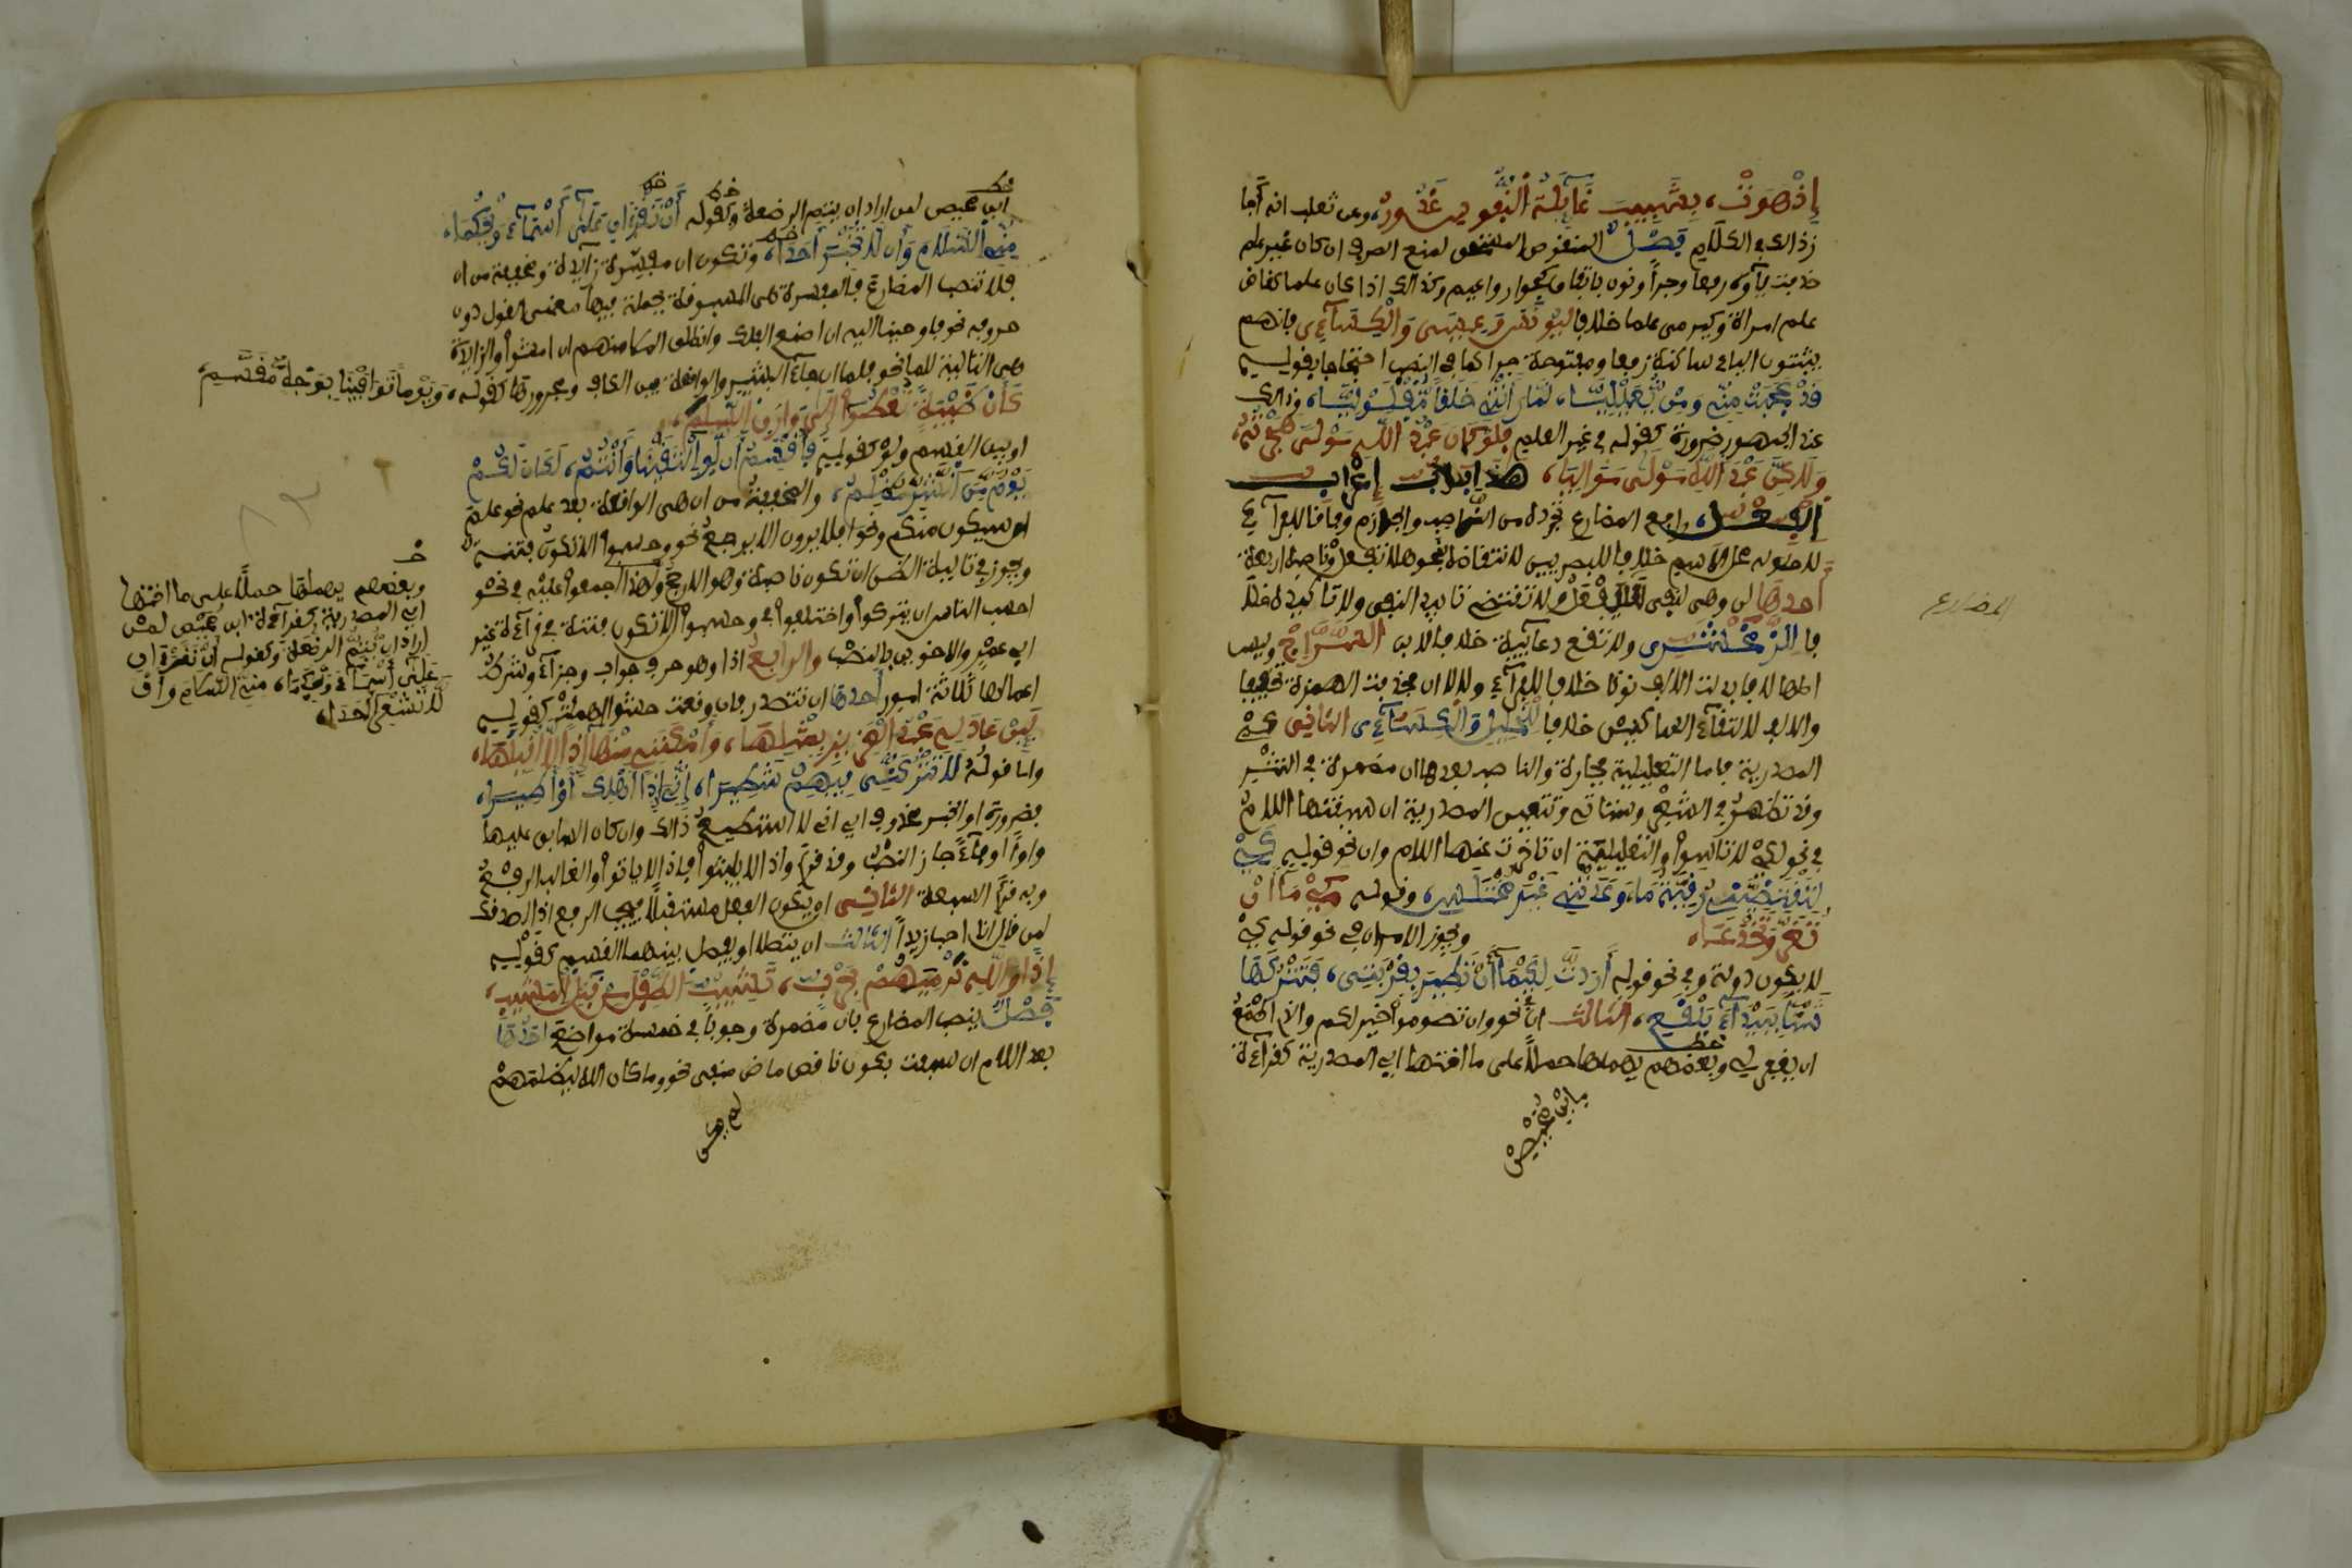 إذ هوت، بشبيب غائلة النفوس غدور، وعن ثعلب انه اجا
ز ذالك في الكلام فصل المنقوص المستحق لمنع الصرف ان كان غير علم
حذفت ياؤه رفعا وجرا ونون باتفاق كجوار واعيم وكذالك اذا كان علما كقاض
علم امراة وكيرمى علما خلافا ليونس وعيسى والكسآءى فانهم
يثبتون الياء ساكنة رفعا ومفتوحة جرا كما في النصب احتجاجا بقوله
قد عجبت مني ومن يعيليا، لما راتني خلقا مقلوليا، وذالك
عند الجمهور ضرورة كقوله في غير العلم فلو كان عبد الله مولى هجوته،
ولاكن عبد الله مولى مواليا، هذا باب إعراب
الفعل، رافع المضارع تجرده من الناصب والجازم وفاقا للفرآء
لا حلوله محل الاسم خلافا للبصريين لانتقاضه بنحو هلا تفعل وناصبه اربعة
احدها لن وهي لنفي سيفعل ولا تقتضي تابيد النفي ولا تاكيده خلا
فا للزمخشرى ولا تقع دعائية خلافا لابن السراج وليس
اصلها لا فابدلت الالف نونا خلافا للفرآء ولا لا ان فحذفت الهمزة تخفيفا
والالف لالتقآء الساكنين خلافا للخليل والكسآءى الثانى كى
المصدرية فاما التعليلية فجارة والناصب بعدها ان مضمرة في النثر
وقد تظهر في الشعر وستاتى وتتعين المصدرية ان سبقتها اللام
في نحو لكي لا تاسوا والتعليلية ان تاخرت عنها اللام وان نحو قوله كي
لتقضيني رقية ما، وعدتني غير مختلس، وقوله كيما ان
تغر وتخدعا، ويجوز الامران في نحو قوله كي
لا يكون دولة وفي نحو قوله أردت لكيما أن تطير بقربتى، فتتركها
شنا ببيدآء بلقع، الثالث ان نحو وان تصوموا خير لكم والذى اطمع
ان يغفر لي وبعضهم يهملها حملا على ما اختها اي المصدرية كقرآءة
ابن محيصن
المضارع
ابن محيصن لمن اراد ان يتم الرضعة وكقوله أن تقرآن على أسمآء ويحكما،
مني السلام وأن لا تخبرا أحدا، وتكون ان مفسرة وزآيدة ومخففة من ان
فلا تنصب المضارع فالمفسرة هى المسبوقة بجملة فيها معنى القول دون
حروفه نحو فاوحينا اليه ان اصنع الفلك وانطلق الملا منهم ان امشوا والزآيدة
هى التالية للما نحو فلما ان جآء البشير والواقعة بين الكاف ومجرورها كقوله، ويوما توافينا بوجه مقسم،
كأن ظبية تعطوا إلى وارق السلم،
او بين القسم ولو كقوله فأقسم أن لو التقينا وأنتم، لكان لكم
يوم من الشر مظلم، والمخففة من ان هى الواقعة بعد علم نحو علم
ان سيكون منكم ونحو افلا يرون الا يرجع نحو وحسبوا الا تكون فتنة
ويجوز في تالية الظن ان تكون ناصبة وهو الارجح ولهذا اجمعوا عليه في نحو
احسب الناس ان يتركوا واختلفوا في وحسبوا الا تكون فتنة في قرآءة غير
ابي عمرو والاخوين بالنصب والرابع اذا وهو حرف جواب وجزآء وشرط
اعمالها ثلاثة امور احدها ان تتصدر فان وقعت حشوا اهملت كقوله
لئن عاد لي عبد العزيز بمثلها، وأمكنني منها إذا لا أقيلها،
واما قوله لا تتركني فيهم شطيرا، إني إذا أهلك أو أطيرا،
فضرورة او الخبر محذوف اي انى لا استطيع ذالك وان كان السابق عليها
واوا او فآء جاز النصب وقد قرئ واذا لا يلبثوا فاذا لا ياتوا والغالب الرفع
وبه قرأ السبعة الثانى ان يكون الفعل مستقبلا فيجب الرفع اذا تصدق
لمن قال انا احب زيدا الثالث ان يتصلا او يفصل بينهما القسم كقوله
إذا والله نرميهم بحرب، تشيب الطفل من قبل المشيب،
فصل ينصب المضارع بان مضمرة وجوبا في خمسة مواضع احدها
بعد اللام ان سبقت بكون ناقص ماض منفى نحو وما كان الله ليظلمهم
وبعضهم يهملها حملا على ما اختها
اي المصدرية كقرآءة ابن محيصن لمن
اراد ان يتم الرضعة وكقوله أن تقرآن
على أسمآء ويحكما، مني السلام وأن
لا تشعرا أحدا،